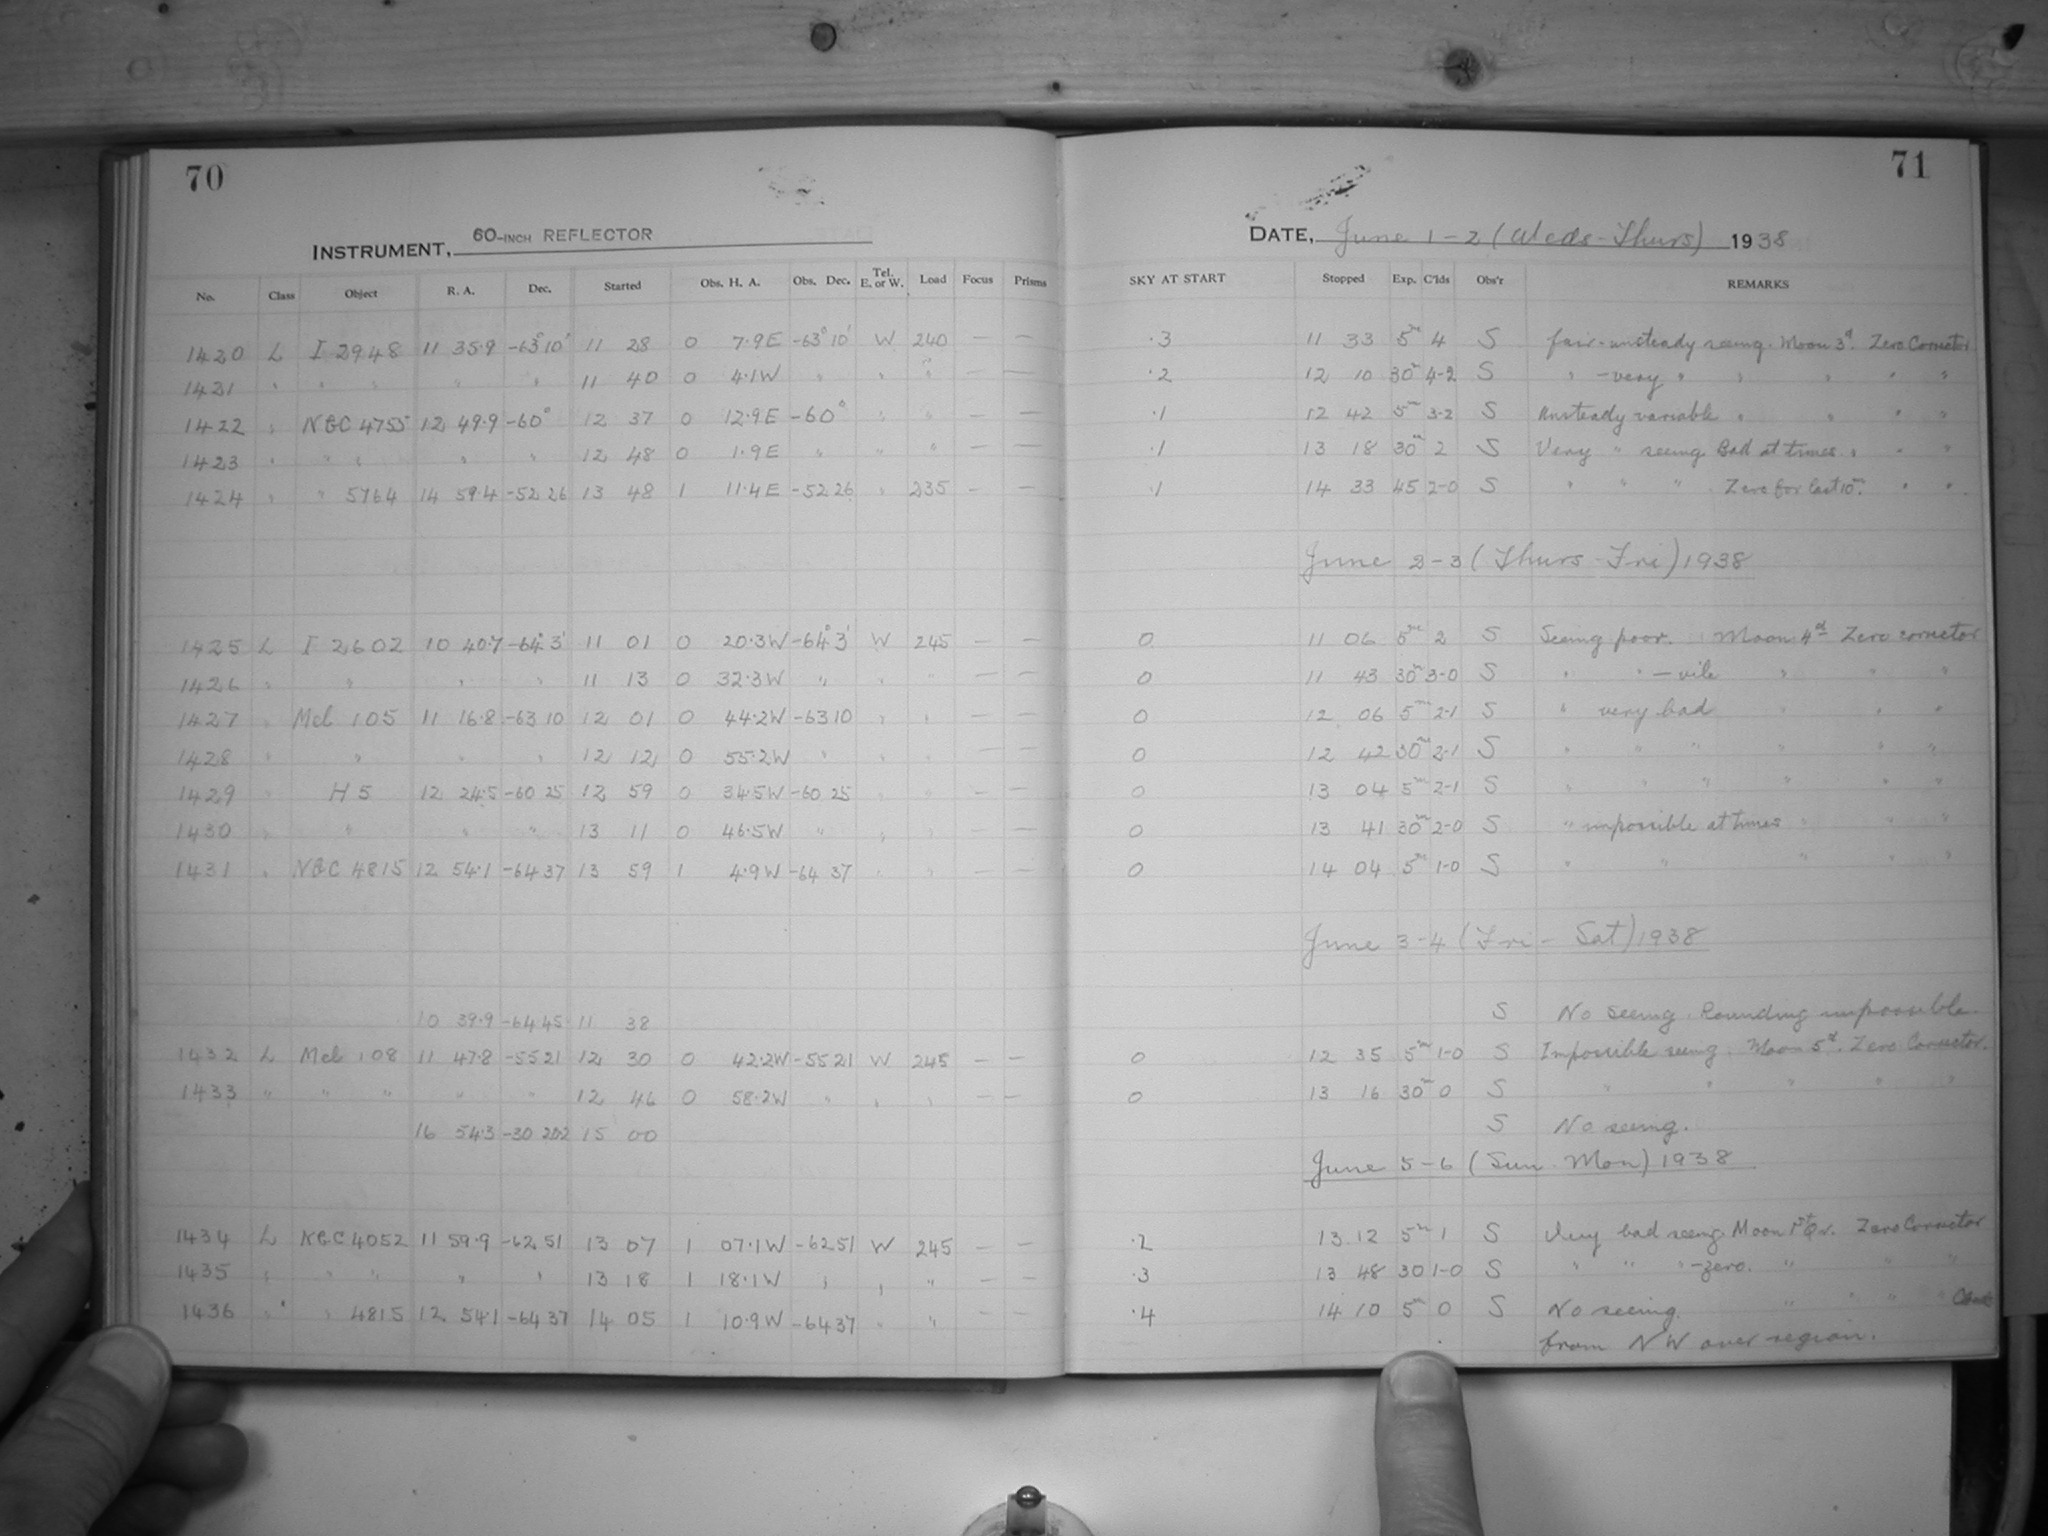 70
71
INSTRUMENT, 60-INCH REFLECTOR
DATE, June 1-2 (Weds-Thurs) 1938
No. Class Object R. A. Dec. Started Obs. H. A. Obs. Dec. Tel. E. or W. Load Focus Prisms SKY AT START Stopped Exp. C'lds Obs'r REMARKS
1420 L I 2948 11 35.9 -63°10' 11 28 0 7.9E -63°10' W 240 — — .3 11 33 5m 4 S fair-unsteady seeing. Moon 3d. Zero Corrector
1421 " " " " " 11 40 0 4.1W " " " — — .2 12 10 30m 4-2 S " -very " " " " "
1422 " NGC 4755 12 49.9 -60° 12 37 0 12.9E -60° " " — — .1 12 42 5m 3-2 S Unsteady variable " " " "
1423 " " " " " 12 48 0 1.9E " " " — — .1 13 18 30m 2 S Very " seeing. Bad at times. " " "
1424 " " 5764 14 59.4 -52 26 13 48 1 11.4E -52 26 " 235 — — .1 14 33 45 2-0 S " " " Zero for last 10m. " "
June 2-3 (Thurs-Fri) 1938
1425 L I 2602 10 40.7 -64°3' 11 01 0 20.3W -64°3' W 245 — — 0 11 06 5m 2 S Seeing poor. Moon 4d Zero corrector
1426 " " " " 11 13 0 32.3W " " " — — 0 11 43 30m 3-0 S " " -vile " " "
1427 " Mel 105 11 16.8 -63 10 12 01 0 44.2W -63 10 " " — — 0 12 06 5m 2-1 S " very bad " " "
1428 " " " " 12 12 0 55.2W " " " — — 0 12 42 30m 2-1 S " " " " " "
1429 " H 5 12 24.5 -60 25 12 59 0 34.5W -60 25 " " — — 0 13 04 5m 2-1 S " " " " " "
1430 " " " " 13 11 0 46.5W " " " — — 0 13 41 30m 2-0 S " impossible at times " " "
1431 " NGC 4815 12 54.1 -64 37 13 59 1 4.9W -64 37 " " — — 0 14 04 5m 1-0 S " " " " "
June 3-4 (Fri-Sat) 1938
10 39.9 -64 45 11 38 S No seeing. Rounding impossible.
1432 L Mel 108 11 47.8 -55 21 12 30 0 42.2W -55 21 W 245 — — 0 12 35 5m 1-0 S Impossible seeing. Moon 5d. Zero Corrector.
1433 " " " " " 12 46 0 58.2W " " " — — 0 13 16 30m 0 S " " " " "
16 54.3 -30 202 15 00 S No seeing.
June 5-6 (Sun-Mon) 1938
1434 L NGC 4052 11 59.9 -62 51 13 07 1 07.1W -62 51 W 245 — — .2 13 12 5m 1 S Very bad seeing. Moon 1st Qr. Zero Corrector
1435 " " " " " 13 18 1 18.1W " " " — — .3 13 48 30 1-0 S " " " -zero. " " "
1436 " " 4815 12 54.1 -64 37 14 05 1 10.9W -64 37 " " — — .4 14 10 5m 0 S No seeing. " " " "
from NW over region.